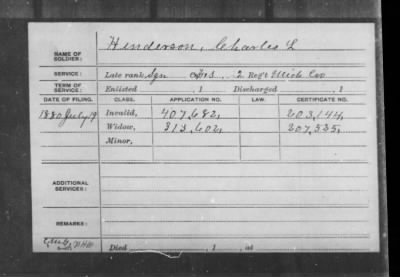 NAME OF SOLDIER: Henderson, Charles L
SERVICE: Late rank, Sgn 2 Reg't Mich Cav
TERM OF SERVICE: Enlisted , 1 Discharged , 1
DATE OF FILING. CLASS. APPLICATION NO. LAW. CERTIFICATE NO.
1880 July 19 Invalid, 407,682, 203,144,
Widow, 313,602, 207,535,
Minor,
ADDITIONAL SERVICES:
REMARKS:
Died , 1 , at